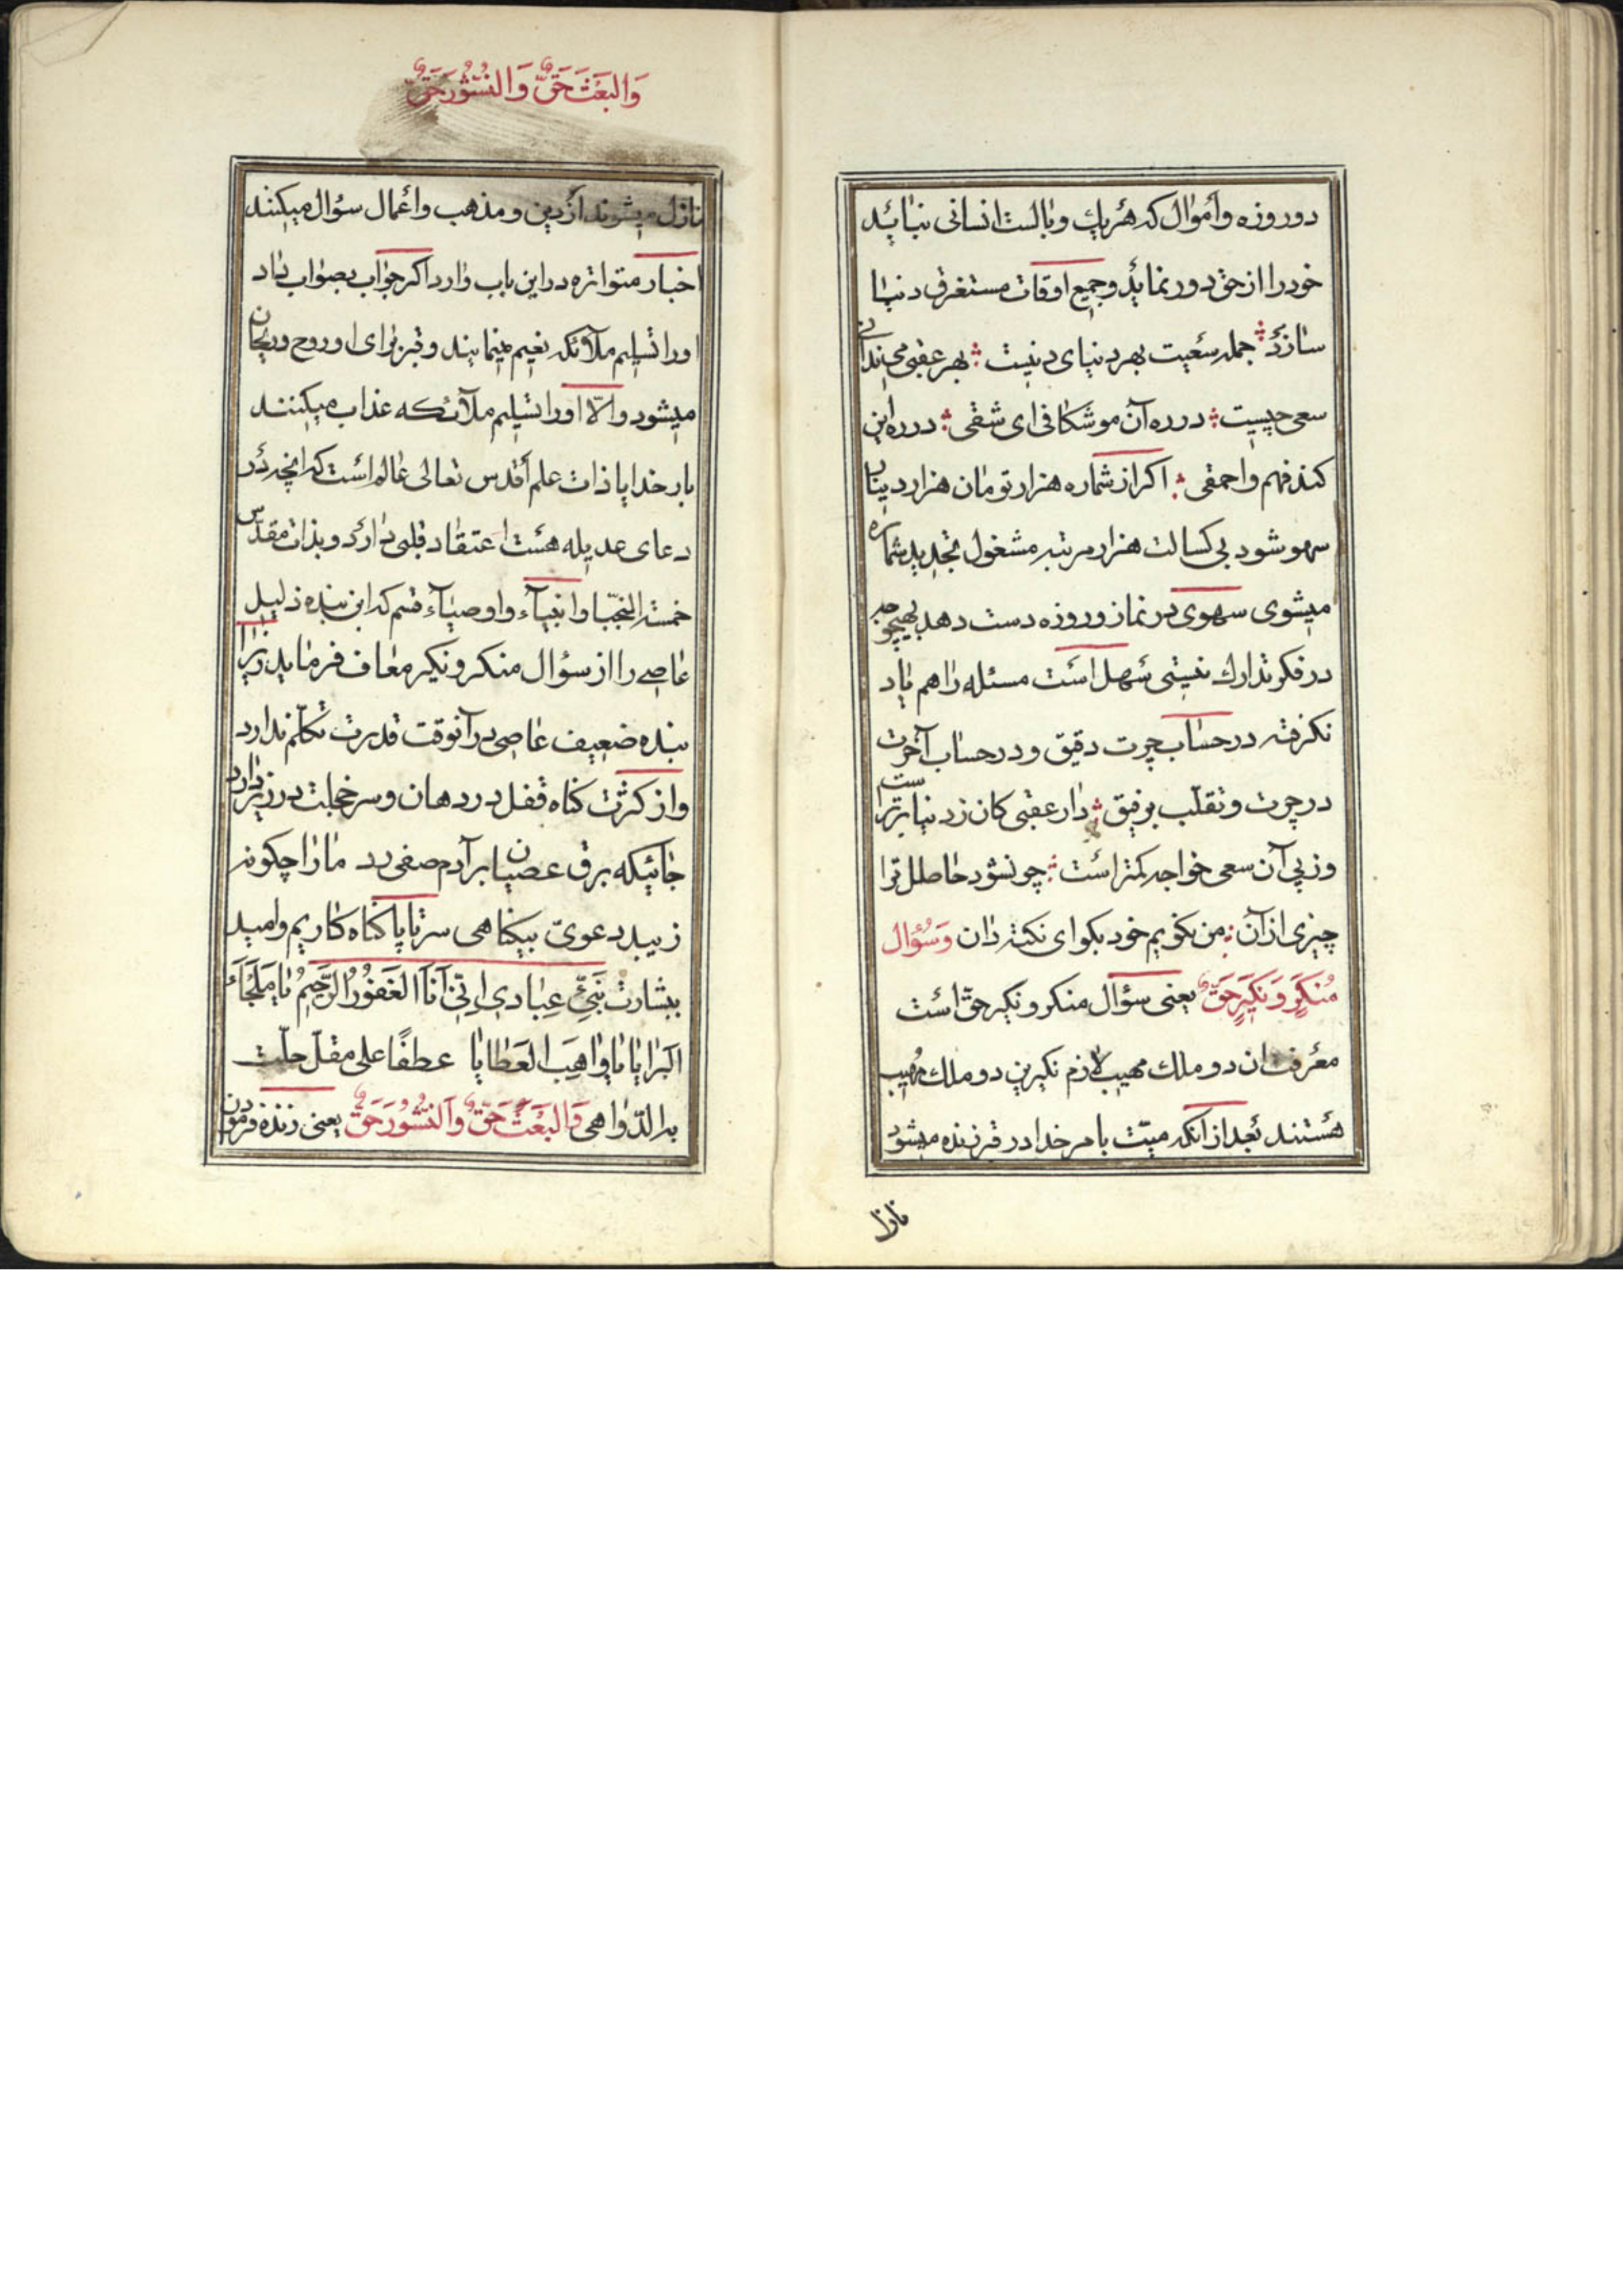 دو روزه و أموال که هر یك وبالست انسانی نباید
خود را از حق دور نماید و جمیع اوقات مستغرق دنیا
سازد جمله سعیت بهر دنیای دنیست بهر عقبی می‌ندانی
سعی چیست در ره آن موشکافی ای شقی در ره این
کند فهم و احمقی اکر از شماره هزار تومان هزار دینار
سهو شود بی کسالت هزار مرتبه مشغول تجدید شماره
میشوی سهوی در نماز و روزه دست دهد بهیچوجه
در فکر تدارك نیستی سهل است مسئله را هم یاد
نکرفته در حساب چرت دقیق و در حساب آخرت
در چرت و تقلب بوفیق دار عقبی کان ز دنیا برتراست
وز پی آن سعی خواجه کمتر است چو نشود حاصل ترا
چیزی از آن من نکویم خود بکو ای نکته دان وَسُؤال
مُنکَرٍ وَنَکیَرٍ حَقٌّ یعنی سؤال منکر و نکیر حق است
معرفت ان دو ملك مهیب لازم نکیرین دو ملك مهیب
هستند بعد از آنکه میّت بامر خدا در قبر زنده میشود
نازل
وَالبَعثَ حَقٌّ وَالنُّشُورَ حَقٌّ
نازل میشوند از دین و مذهب و اعمال سؤال میکنند
اخبار متواتره در این باب وارد اکر جواب بصواب داد
او را تسلیم ملائکه نعیم مینمایند و قبر برای او روح و ریحان
میشود و الّا او را تسلیم ملآئکه عذاب میکنند
بار خدایا ذات علم أقدس تعالی عالم است که انچه در
دعای عدیله هست اعتقاد قلبی دارد و بذات مقدس
خمسة النجبا و انبیآء و اوصیآء قسم که این بنده ذلیل
عاصی را از سؤال منکر و نکیر معاف فرماید زیرا
بنده ضعیف عاصی در آنوقت قدرت تکلّم ندارد
و از کثرت کناه قفل در دهان و سر خجلت در زیر دارد
جائیکه برق عصیان بر آدم صفی زد ما را چکونه
زیبد دعویّ بیکناهی سرتاپا کناه کاریم و امید
ببشارت نَبِّئ عِبادی اِنّی اَنَا الغَفوُرُ الرَّحیمُ یا مَلجَأ
البَرایا یا واهِبَ العَطایا عطفًا علی مقلّ حلّت
به الدّواهی وَالبَعثَ حَقٌّ وَالنُّشُورَ حَقٌّ یعنی زنده فرمودن